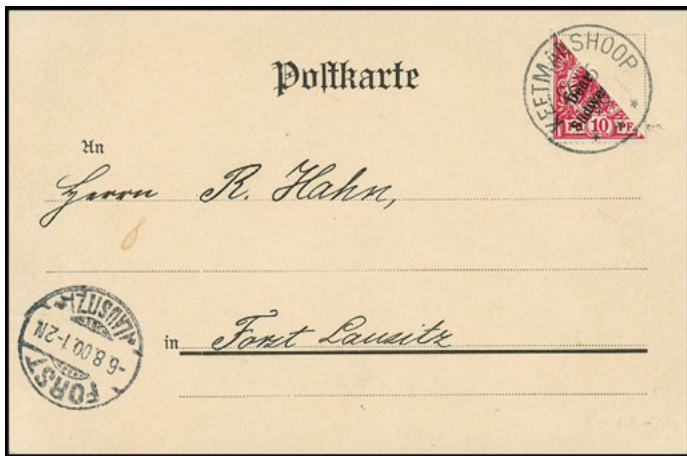 Postkarte
KEETMANSHOOP
Deut
Südwe
10 PF
An
Herrn R. Hahn,
in Forst Lausitz
FORST (LAUSITZ)
-6.8.00.1-2N